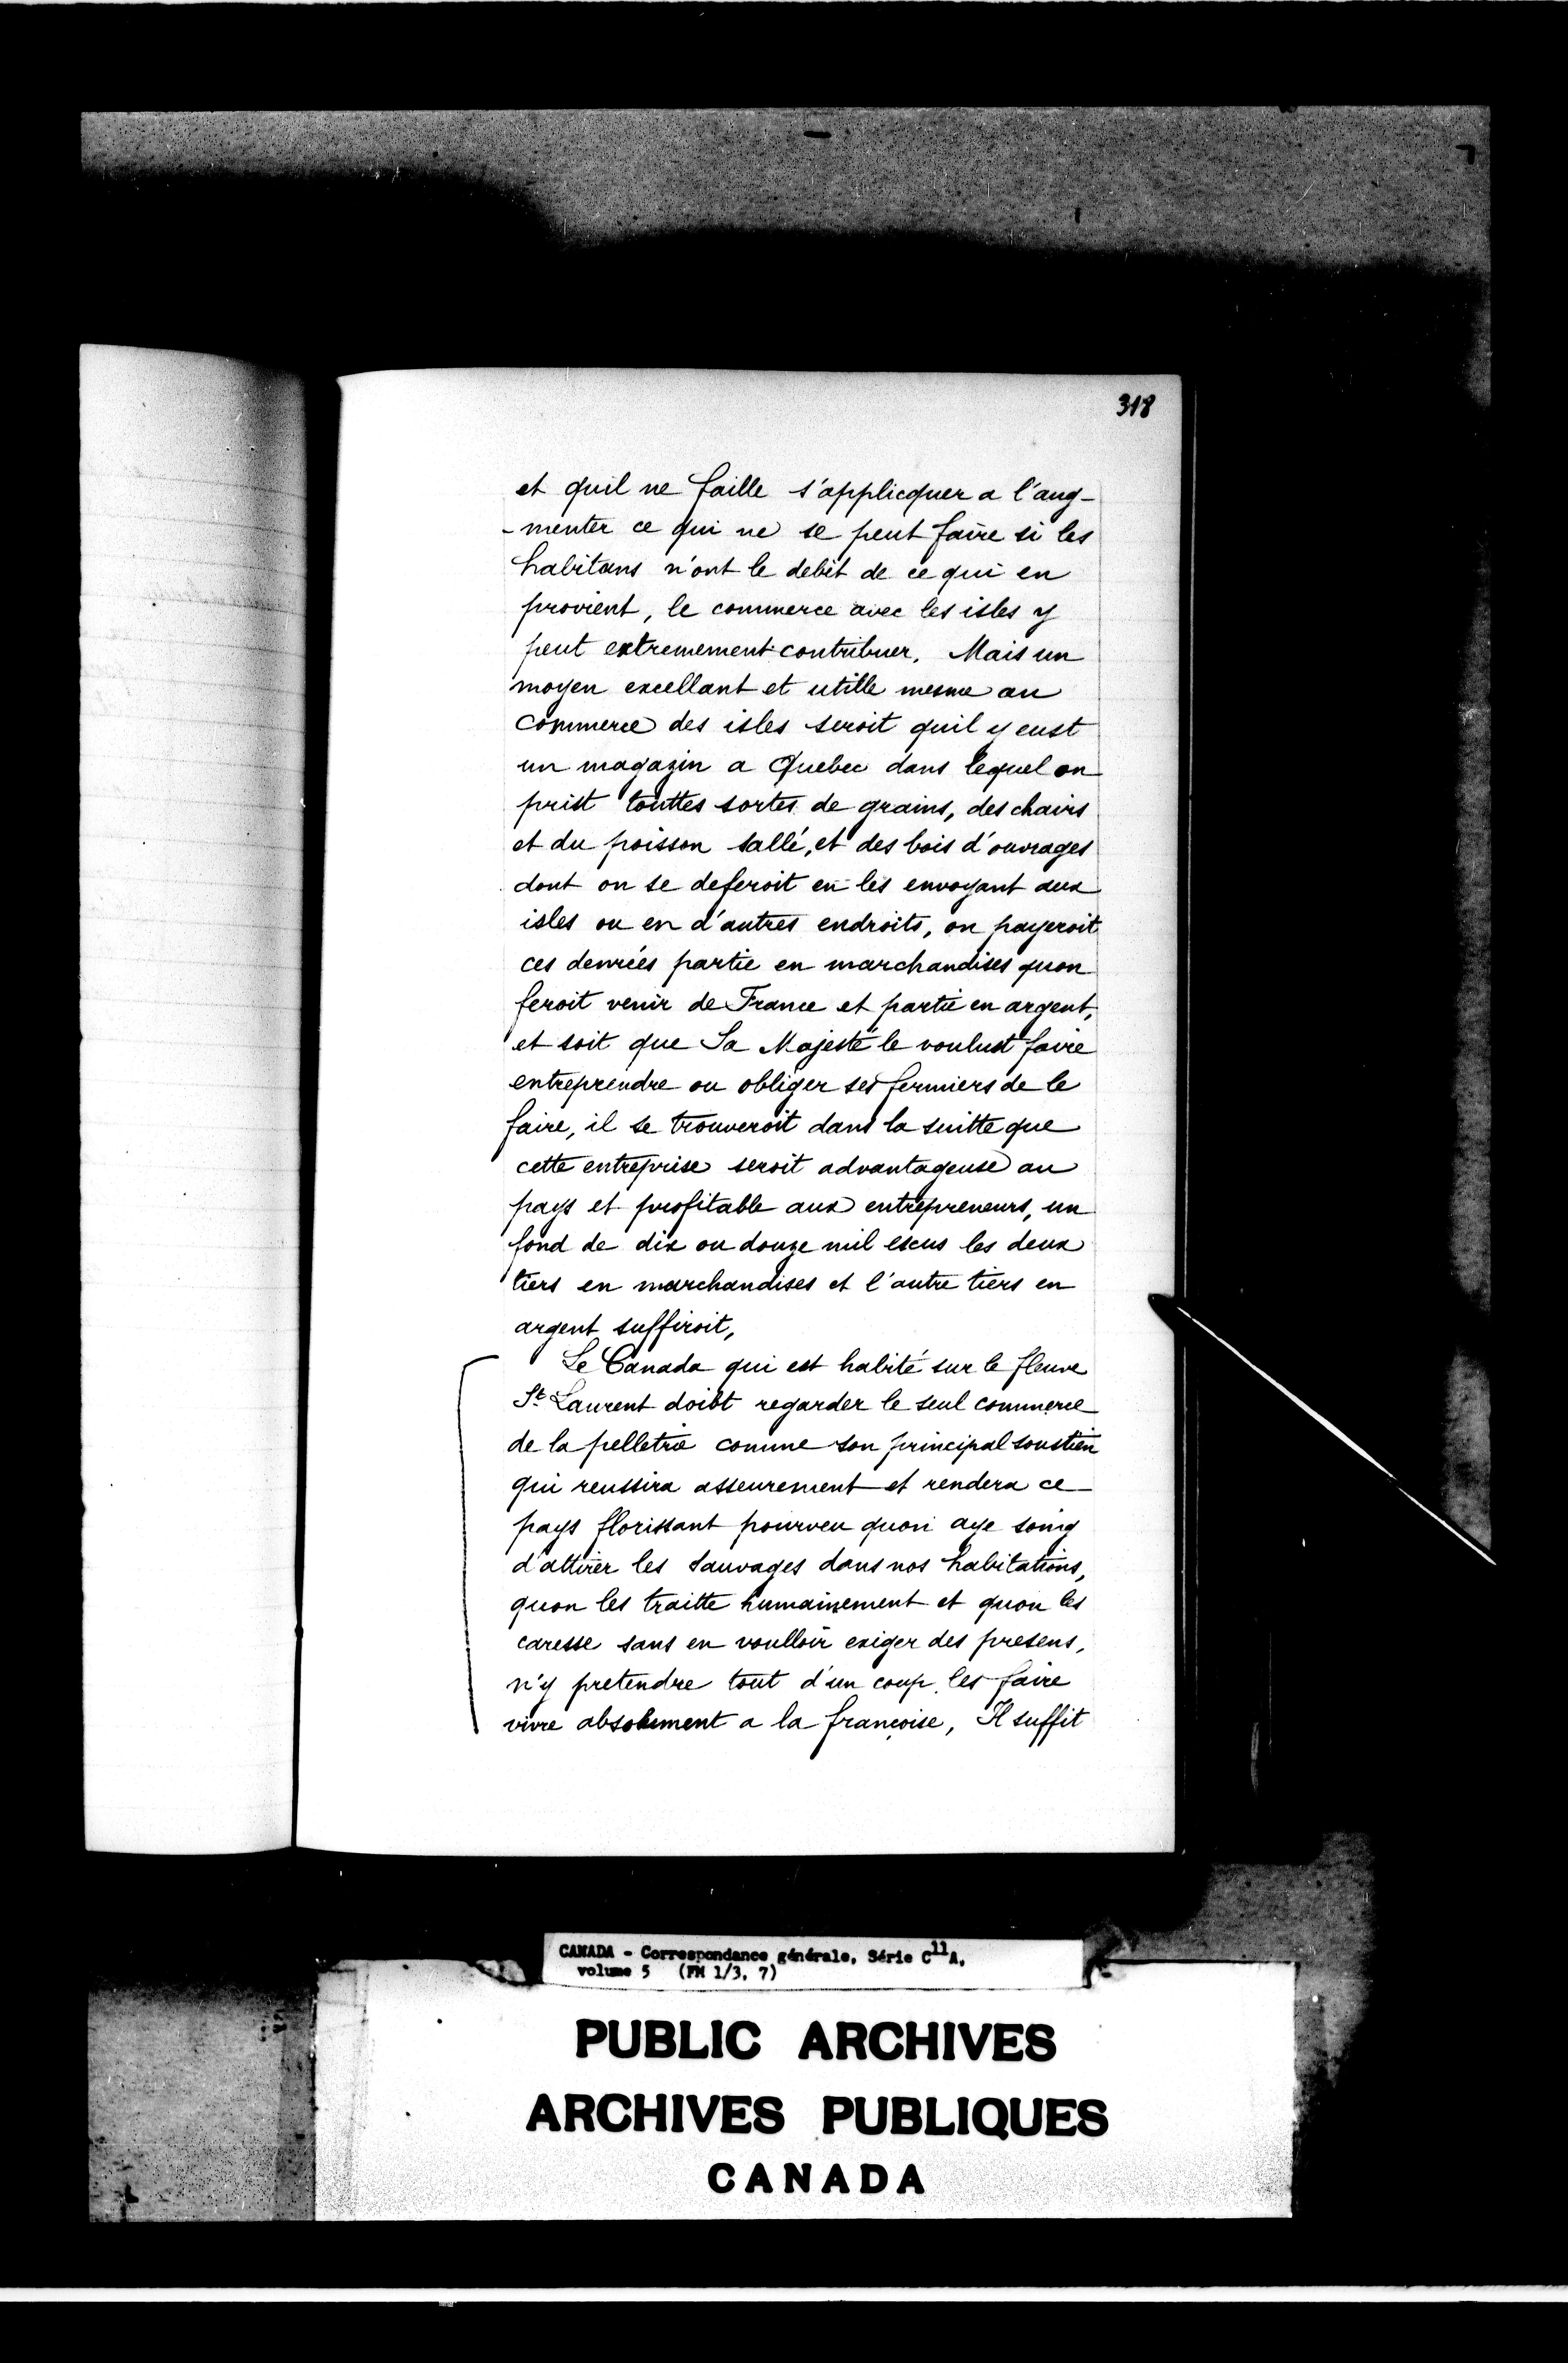 318
et quil ne faille s'applicquer a l'aug-
-menter ce qui ne se peut faire si les
habitans n'ont le debit de ce qui en
provient, le commerce avec les isles y
peut extremement contribuer. Mais un
moyen excellant et utille mesme au
commerce des isles seroit quil y eust
un magazin a Quebec dans lequel on
prist touttes sortes de grains, des chairs
et du poisson sallé, et des bois d'ouvrages
dont on se deferoit en les envoyant aux
isles ou en d'autres endroits, on payeroit
ces denrées partie en marchandises quon
feroit venir de France et partie en argent,
et soit que Sa Majesté le voulust faire
entreprendre ou obliger ses fermiers de le
faire, il se trouveroit dans la suitte que
cette entreprise seroit advantageuse au
pays et profitable aux entrepreneurs, un
fond de dix ou douze mil escus les deux
tiers en marchandises et l'autre tiers en
argent suffiroit,
Le Canada qui est habité sur le fleuve
St Laurent doibt regarder le seul commerce
de la pelletrie comme son principal soustien
qui reussira asseurement et rendera ce
pays florissant pourveu quon aye soing
d'attirer les sauvages dans nos habitations,
quon les traitte humainement et quon les
caresse sans en voulloir exiger des presens,
n'y pretendre tout d'un coup les faire
vivre absolument a la françoise, Il suffit
CANADA - Correspondance générale, Série C11A,
volume 5 (FM 1/3, 7)
PUBLIC ARCHIVES
ARCHIVES PUBLIQUES
CANADA